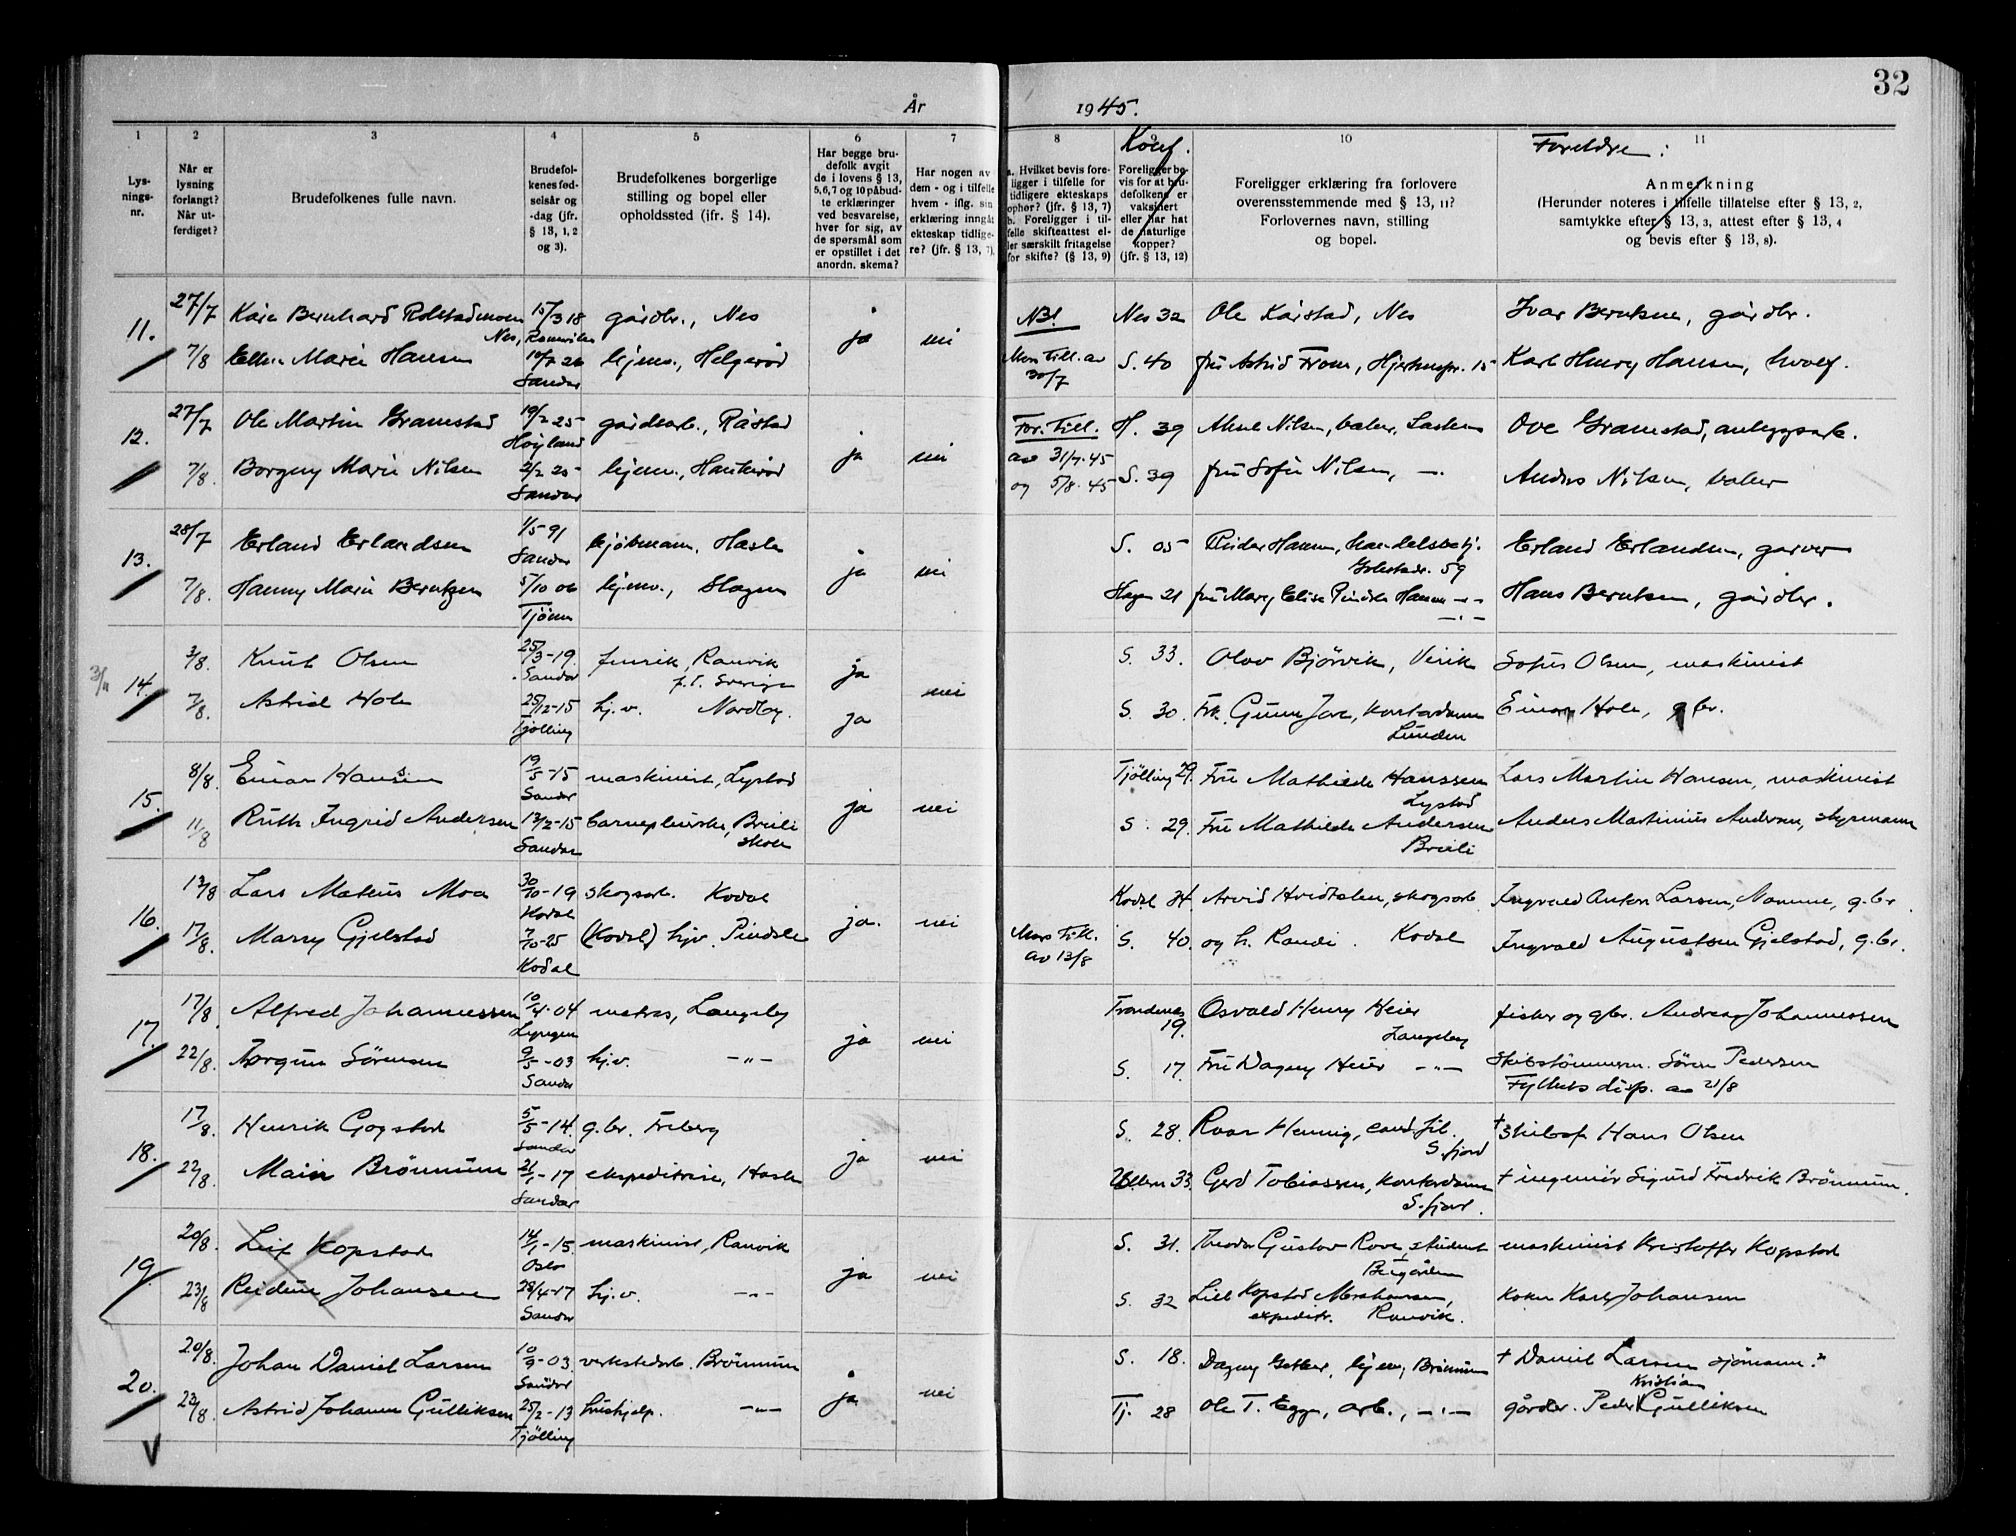 32
År 1945.
1 2 3 4 5 6 7 8 9 10 11
Lys-
nings-
nr.
Når er
lysning
forlangt?
Når ut-
ferdiget?
Brudefolkenes fulle navn.
Brudefol-
kenes fød-
selsår og
-dag (jfr.
§ 13, 1, 2
og 3).
Brudefolkenes borgerlige
stilling og bopel eller
opholdssted (jfr. § 14).
Har begge bru-
defolk avgit
de i lovens § 13,
5, 6, 7 og 10 påbud-
te erklæringer
ved besvarelse,
hver for sig, av
de spørsmål som
er opstillet i det
anordn. skema?
Har nogen av
dem - og i tilfelle
hvem - iflg. sin
erklæring inngått
ekteskap tidlige-
re? (jfr. § 13, 7).
a. Hvilket bevis fore-
ligger i tilfelle for
tidligere ekteskaps
ophør? (jfr. § 13, 7)
b. Foreligger i til-
felle skifteattest el-
ler særskilt fritagelse
for skifte? (§ 13, 9)
Konf.
Foreligger be-
vis for at bru-
defolkene er
vaksinert
eller har hat
de naturlige
kopper?
(jfr. § 13, 12)
Foreligger erklæring fra forlovere
overensstemmende med § 13, 11?
Forlovernes navn, stilling
og bopel.
Foreldre:
Anmerkning
(Herunder noteres i tilfelle tillatelse efter § 13, 2,
samtykke efter § 13, 3, attest efter § 13, 4
og bevis efter § 13, 8).
11. 27/7 Kåre Bernhard Rolstadmoen 15/3 18 gårdbr., Nes NB! Nes 32 Ole Kårstad, Nes Ivar Berntsen, gårdbr.
Nes, Romerike
7/8 Ellen Marie Hansen 10/7 26 hjemv., Helgerød ja nei Mors till. av S. 40 fru Astrid From, Hjertnespr. 15 Karl Henry Hansen, hvalf.
Sandar 30/7
12. 27/7 Ole Martin Gramstad 19/2 25 gårdsarb., Råstad For. till. H. 39 Aksel Nilsen, baker, Ove Gramstad, anleggsarb.
Høyland ja nei av 31/7.45
7/8. Borgny Marie Nilsen 2/2 25 hjemv., Haukerød og 5/8.45 S. 39 fru Sofie Nilsen, -"- Anders Nilsen, baker
Sandar
13. 28/7 Erland Erlandsen 1/5 91 kjøbmann, Hasle S. 05 Hansen, handelsbetj. Erland Erlandsen, garver
Sandar ja nei 59
7/8. Hanny Marie Berntzen 5/10 06 hjemv., Slagen 21 fru Mary Elise Hansen -"- Hans Berntsen, gårdbr.
Tjøme -"-
3/11 14. 3/8. Knut Olsen 25/3-19. fenrik, Ranvik ja S. 33. Olav Bjørvik, Virik Sofus Olsen, maskinist
Sandar f.t. Sverige nei
7/8. Astrid Hole 25/12-15 hj.v. Nordby. ja S. 30. Frk. Gunn Jore, kontordame Einar Hole, gbr.
Tjølling Lunden
15. 8/8. Einar Hansen 19/5-15 maskinist, Lystad Tjølling 29. Fru Mathilde Hanssen Lars Martin Hansen, maskinist
Sandar ja nei Lystad
11/8 Ruth Ingrid Andersen 13/2-15 barnepleierske, Breili S. 29. Fru Mathilde Andersen Anders Martinius Andersen, styrmann
Sandar skole Breili
16. 13/8 Lars Mateus Moa 30/10-19 skogsarb. Kodal Kodal 34. Arvid Hvidtsten, skogsarb. Ingvald Anton Larsen, Nomme, g.br.
Kodal ja. nei
17/8. Marry Gjelstad 7/10-25 (Kodal) hjv. Pindsle Mors till. S. 40. og h. Randi. Kodal Ingvald Augustsen Gjelstad, g.br.
Kodal av 13/8
17. 17/8. Alfred Johannessen 10/4-04 matros, Langeby Trondenes Osvald Henry Heier fisker og gbr. Andreas Johannessen
Lyngen ja nei 19. Langeby
22/8. Torgun Sørensen 9/5-03 hj.v. -"- S. 17. Fru Dagny Heier -"- Skibstømmerm. Søren Pedersen
Sandar Fylkets disp. av 21/8
18. 17/8. Henrik Gogstad 5/5-14. g.br. Freberg S. 28. Roar Hennig, cand. fil. † Hans Olsen
Sandar ja nei S.fjord
22/8. Maia Brønnum 21/1-17 ekspeditrise, Hasle Ullern 33. Gerd Tobiassen, kontordame † ingeniør Sigurd Fredrik Brønnum.
Sandar S.fjord.
19. 20/8. Leif Kopstad 14/1-15. maskinist, Ranvik S. 31. Theodor Gustav Rove, student maskinist Kristoffer Kopstad
Oslo ja nei
23/8 Reidun Johansen 28/4-17 hj.v. -"- S. 32 Lill Kopstad Kokk Karl Johansen
Sandar expeditr. Ranvik.
20. 20/8. Johan Daniel Larsen 10/9-03. verkstedarb. Brønnum S. 18. Dagny hjem, Brønnum † Daniel Larsen sjømann.
Sandar ja nei Kristian
23/8. Astrid Johanne Gulliksen 25/2-13 hushjelp. -"- Tj. 28 Ole T. Egge, arb., -"- gårdbr. Peder Gulliksen
Tjølling
V